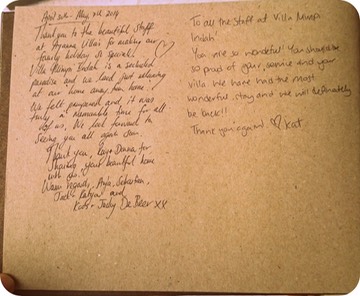 April 30th - May 7th 2014
Thank you to the beautiful staff
at Ayanna Villas for making our
family holiday so special!
Villa Mimpi Indah is a secluded
paradise and we loved just relaxing
at our home away from home.
We felt pampered and it was
truly a memorable time for all
of us. We look forward to
seeing you all again soon.
Thank you, Donna for
sharing your beautiful home
with us.
Warm regards, Anja, Sebastian,
Jack + Katya and
Kate + Jody De Beer xx
To all the staff at Villa Mimpi
Indah
You are so wonderful! You should be
so proud of your service and your
villa. We have had the most
wonderful stay and we will definately
be back!!
Thank you again! ♡ Kat